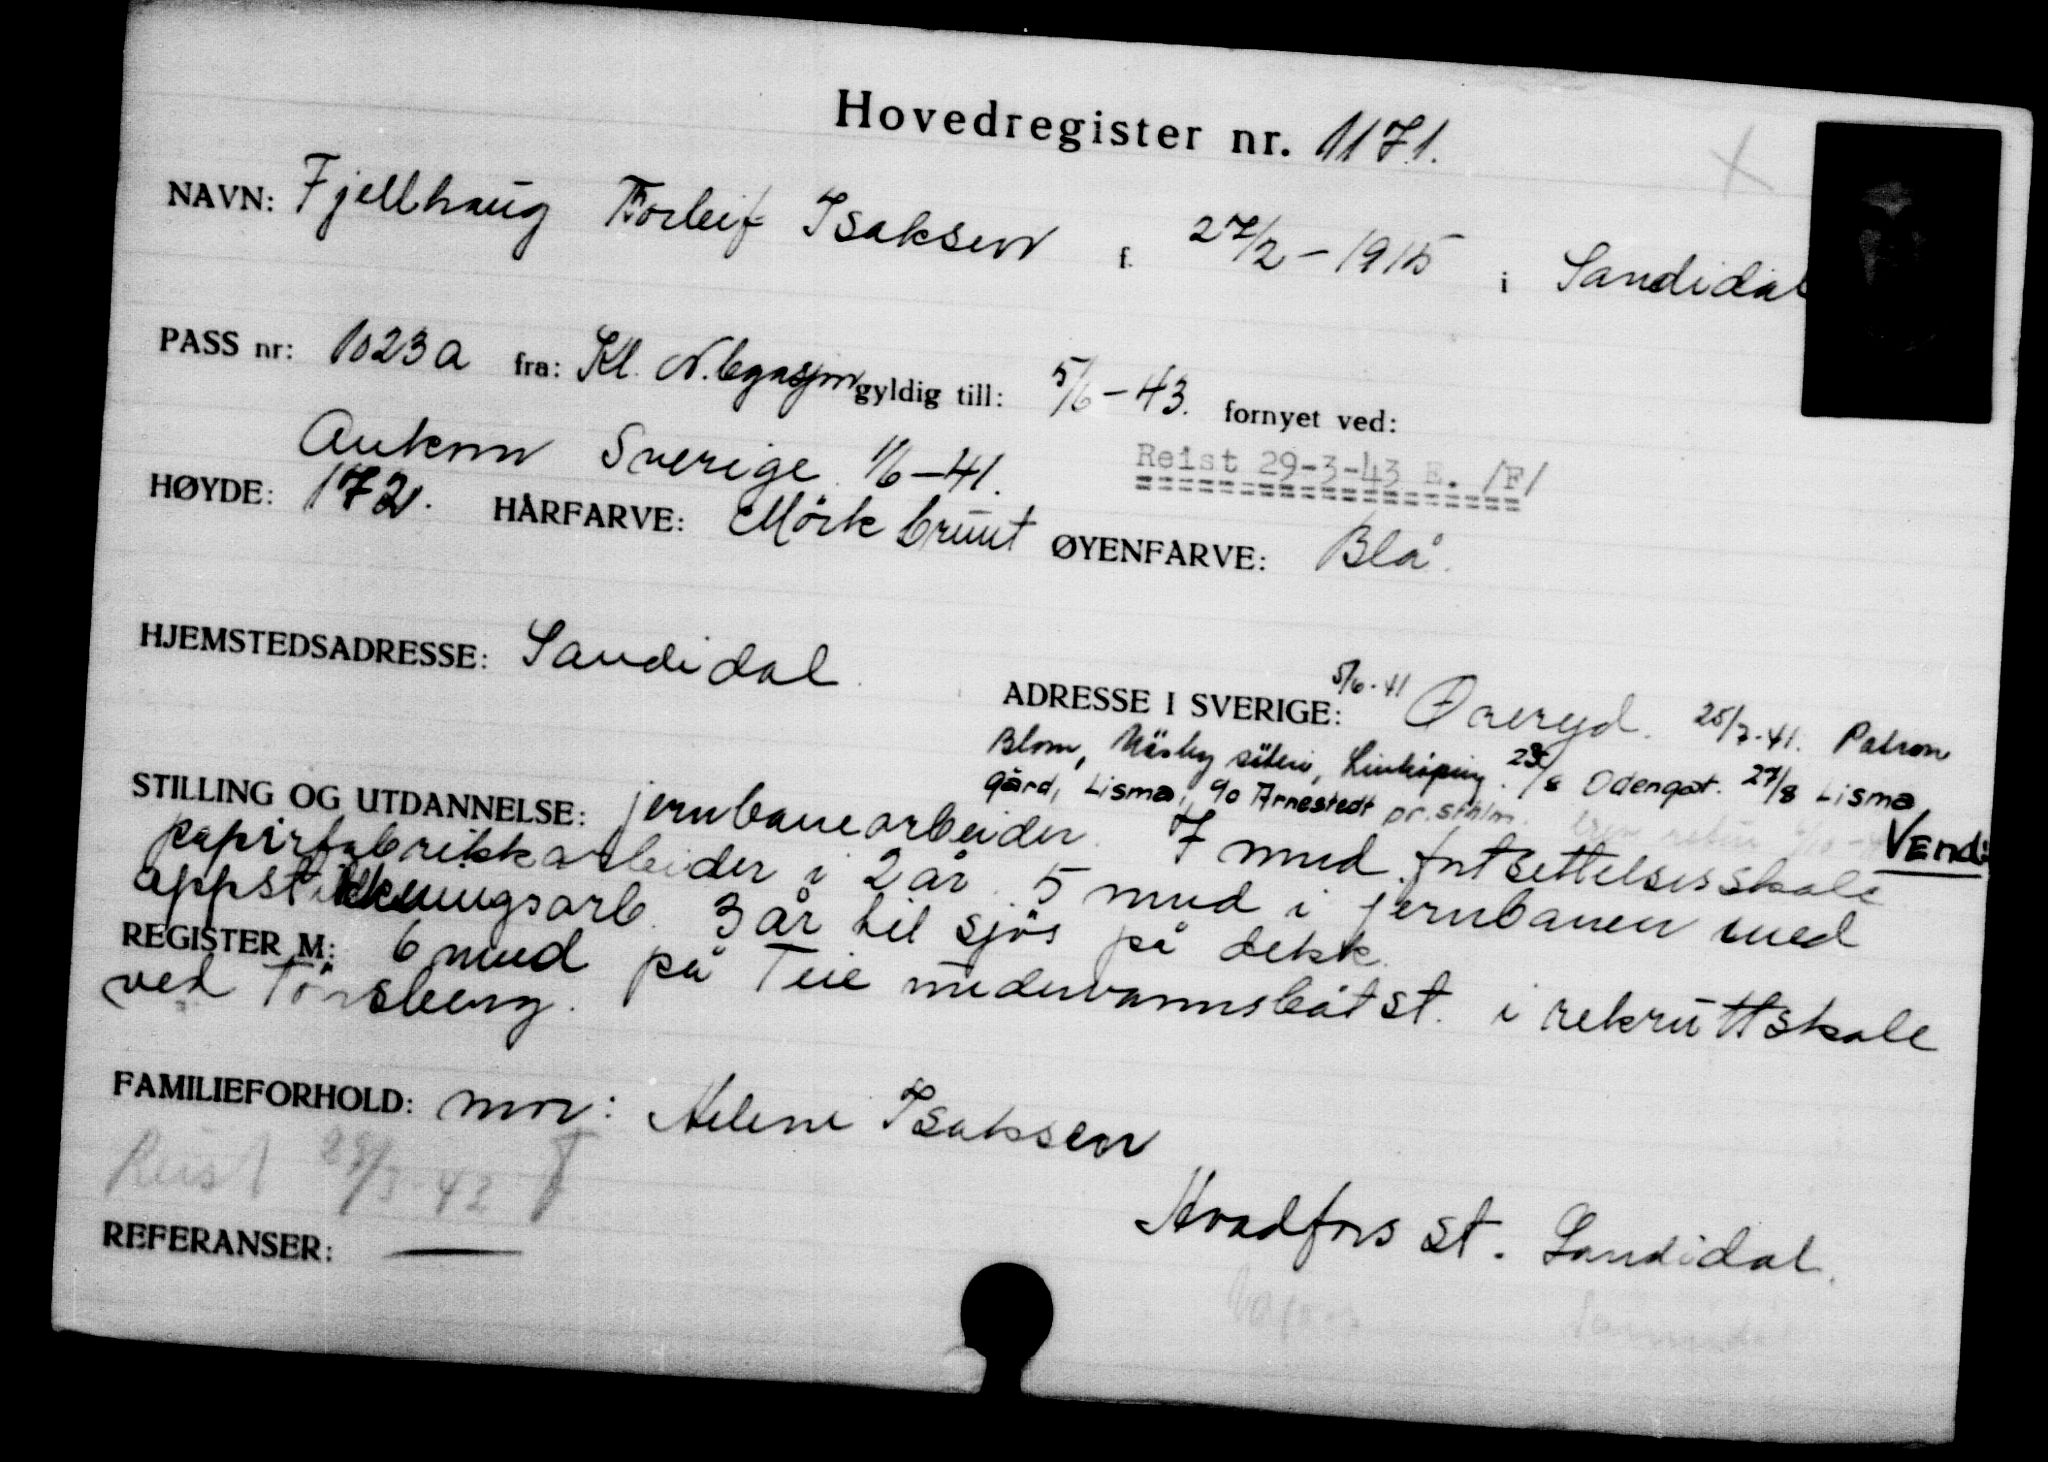 Hovedregister nr. 1171.
NAVN: Fjellhaug Torleif Isaksen f. 27/2 - 1915 i Sandidal
PASS nr: 1023a fra: Kl. N. legasjon gyldig till: 5/6 - 43. fornyet ved:
Ankom Sverige 1/6 - 41.
Reist 29-3-43 E. /F/
HØYDE: 172. HÅRFARVE: Mörk brunt ØYENFARVE: Blå.
HJEMSTEDSADRESSE: Sandidal
ADRESSE I SVERIGE: 5/6-41 Öreryd. 25/7-41. Patron
Blom, säteri, Linköping. /8 Odengat. 27/8 Lisma
gård, Lisma, c/o Arnestedt pr. sthlm.
Vend:
STILLING OG UTDANNELSE: jernbanearbeider. 7 mnd. fortsettelsesskole
papirfabrikkarbeider i 2 år. 5 mnd i jernbanen med
oppstikkningsarb. 3 år til sjös på dekk.
REGISTER M: 6 mnd på Teie undervannsbåtst. i rekruttskole
ved Tönsberg.
FAMILIEFORHOLD: mor: Helene Isaksen
Reist 29/3-43 F
Hvadfors st. Sandidal.
REFERANSER: —